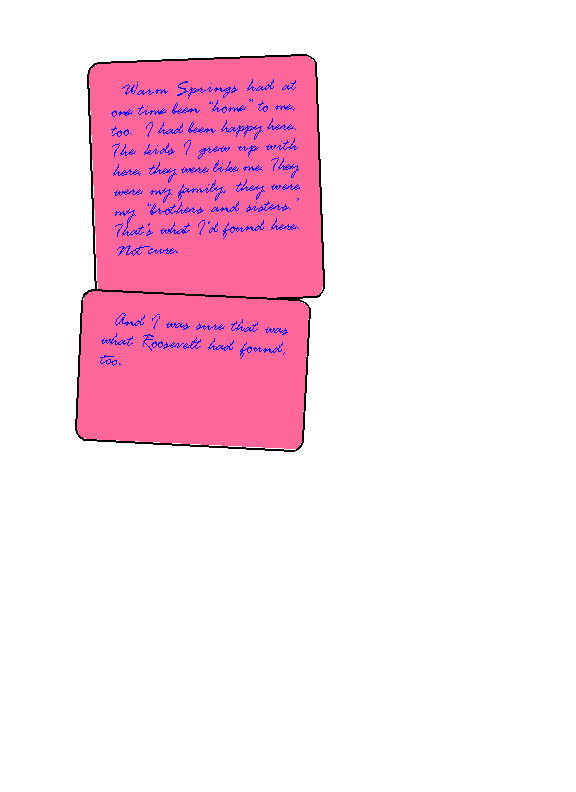 Warm Springs had at
one time been "home" to me,
too. I had been happy here.
The kids I grew up with
here, they were like me. They
were my family, they were
my "brothers and sisters."
That's what I'd found here.
Not cure.
And I was sure that was
what Roosevelt had found,
too.